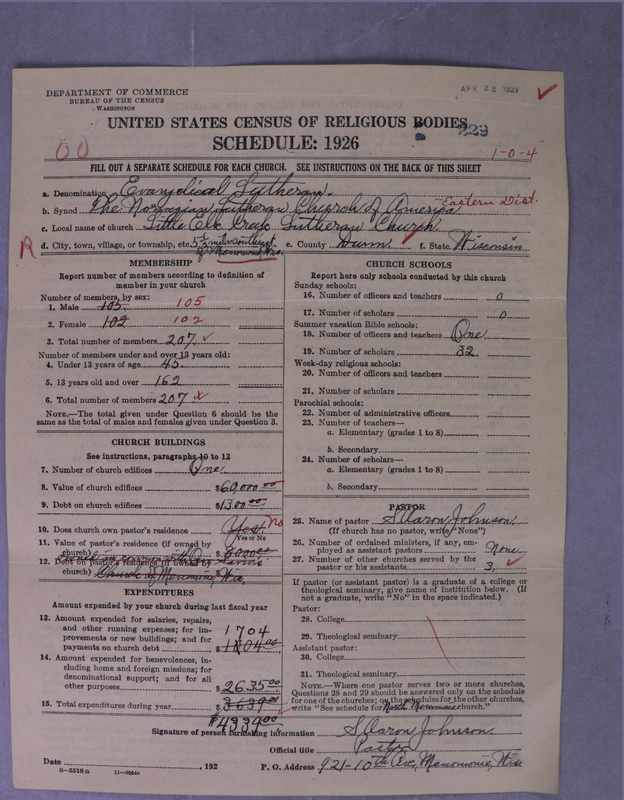 DEPARTMENT OF COMMERCE
BUREAU OF THE CENSUS
WASHINGTON
APR 28 1927
UNITED STATES CENSUS OF RELIGIOUS BODIES
SCHEDULE: 1926
1-0-4
FILL OUT A SEPARATE SCHEDULE FOR EACH CHURCH. SEE INSTRUCTIONS ON THE BACK OF THIS SHEET
a. Denomination Evangelical Lutheran.
b. Synod The Norwegian Lutheran Church of America Eastern Dist.
c. Local name of church Little Elk Creek Lutheran Church
d. City, town, village, or township, etc. 5½ miles southeast of Menomonie, Wis. e. County Dunn f. State Wisconsin
R
MEMBERSHIP
Report number of members according to definition of
member in your church
Number of members, by sex:
1. Male 105 105
2. Female 102 102
3. Total number of members 207
Number of members under and over 13 years old:
4. Under 13 years of age 45
5. 13 years old and over 162
6. Total number of members 207
NOTE.—The total given under Question 6 should be the
same as the total of males and females given under Question 3.
CHURCH BUILDINGS
See instructions, paragraphs 10 to 12
7. Number of church edifices One.
8. Value of church edifices $
9. Debt on church edifices $1300.00
10. Does church own pastor's residence Yes. No
Yes or No
11. Value of pastor's residence (if owned by
church) $8000.00
12. Debt on pastor's residence (if owned by
church) Church of Menomonie, Wis.
EXPENDITURES
Amount expended by your church during last fiscal year
13. Amount expended for salaries, repairs,
and other running expenses; for im-
provements or new buildings; and for
payments on church debt 1704
14. Amount expended for benevolences, in-
cluding home and foreign missions; for
denominational support; and for all
other purposes $2635.00
15. Total expenditures during year $
$4339.00
CHURCH SCHOOLS
Report here only schools conducted by this church
Sunday schools:
16. Number of officers and teachers 0
17. Number of scholars 0
Summer vacation Bible schools:
18. Number of officers and teachers One
19. Number of scholars 32
Week-day religious schools:
20. Number of officers and teachers
21. Number of scholars
Parochial schools:
22. Number of administrative officers
23. Number of teachers—
a. Elementary (grades 1 to 8)
b. Secondary
24. Number of scholars—
a. Elementary (grades 1 to 8)
b. Secondary
PASTOR
25. Name of pastor S. Aaron Johnson.
(If church has no pastor, write "None")
26. Number of ordained ministers, if any, em-
ployed as assistant pastors None.
27. Number of other churches served by the
pastor or his assistants 3.
If pastor (or assistant pastor) is a graduate of a college or
theological seminary, give name of institution below. (If
not a graduate, write "No" in the space indicated.)
Pastor:
28. College
29. Theological seminary
Assistant pastor:
30. College
31. Theological seminary
NOTE.—Where one pastor serves two or more churches,
Questions 28 and 29 should be answered only on the schedule
for one of the churches; on the schedules for the other churches,
write "See schedule for North Menomonie church."
Signature of person furnishing information S. Aaron Johnson.
Official title Pastor
Date , 192 P. O. Address 921-10th Ave, Menomonie, Wis